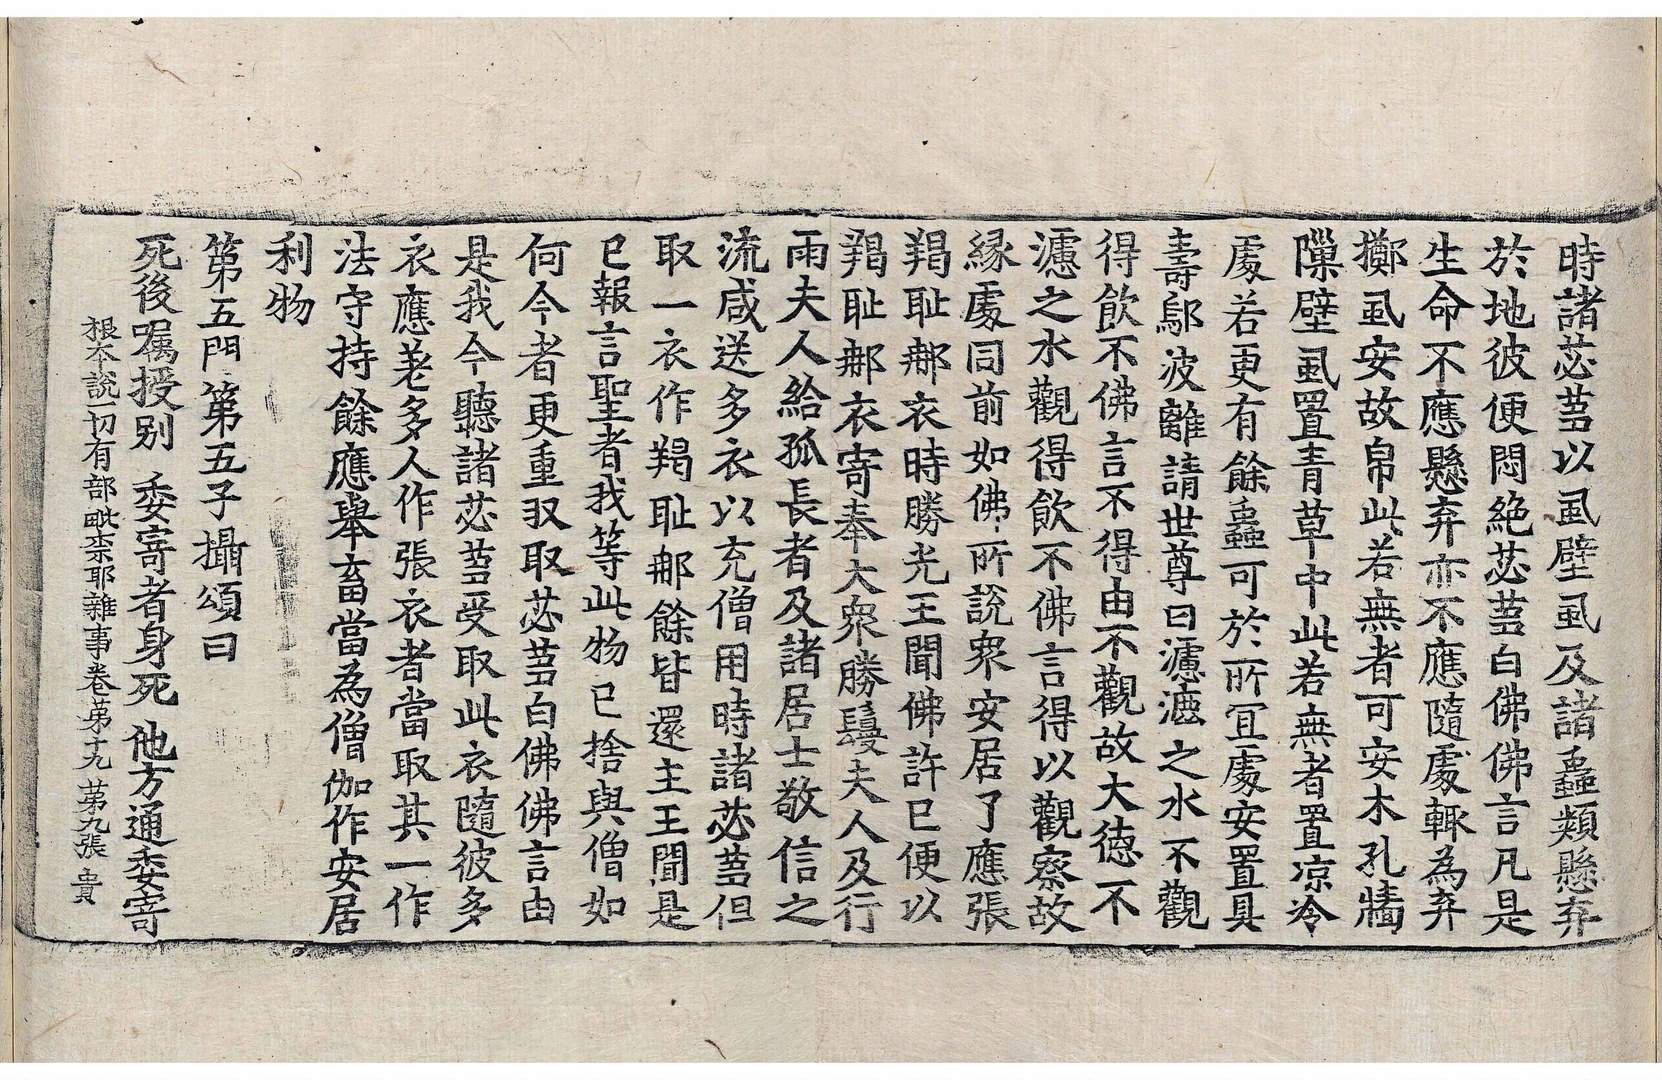 時諸苾芻以虱壁虱及諸蟲類懸弃
於地彼便悶絶苾芻白佛佛言凡是
生命不應懸弃亦不應隨處輙為弃
擲虱安故帛此若無者可安木孔牆
隟壁虱置青草中此若無者置凉冷
處若更有餘蟲可於所冝處安置具
壽鄔波離請世尊曰濾漉之水不觀
得飲不佛言不得由不觀故大德不
濾之水觀得飲不佛言得以觀察故
縁處同前如佛所說衆安居了應張
羯耻郍衣時勝光王聞佛許已便以
羯耻郍衣寄奉大衆勝鬘夫人及行
雨夫人給孤長者及諸居士敬信之
流咸送多衣以充僧用時諸苾芻但
取一衣作羯耻郍餘皆還主王聞是
已報言聖者我等此物已捨與僧如
何今者更重収取苾芻白佛佛言由
是我今聽諸苾芻受取此衣隨彼多
衣應差多人作張衣者當取其一作
法守持餘應舉畜當為僧伽作安居
利物
第五門第五子攝頌曰
死後囑授別 委寄者身死 他方通委寄
根本說一切有部毗柰耶雜事卷苐十九 苐九張 貴